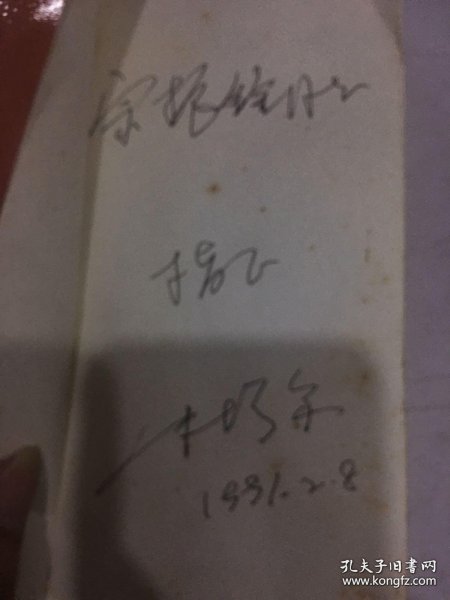 宋振铨同志
指正
1991.2.8
孔夫子旧书网
www.kongfz.com